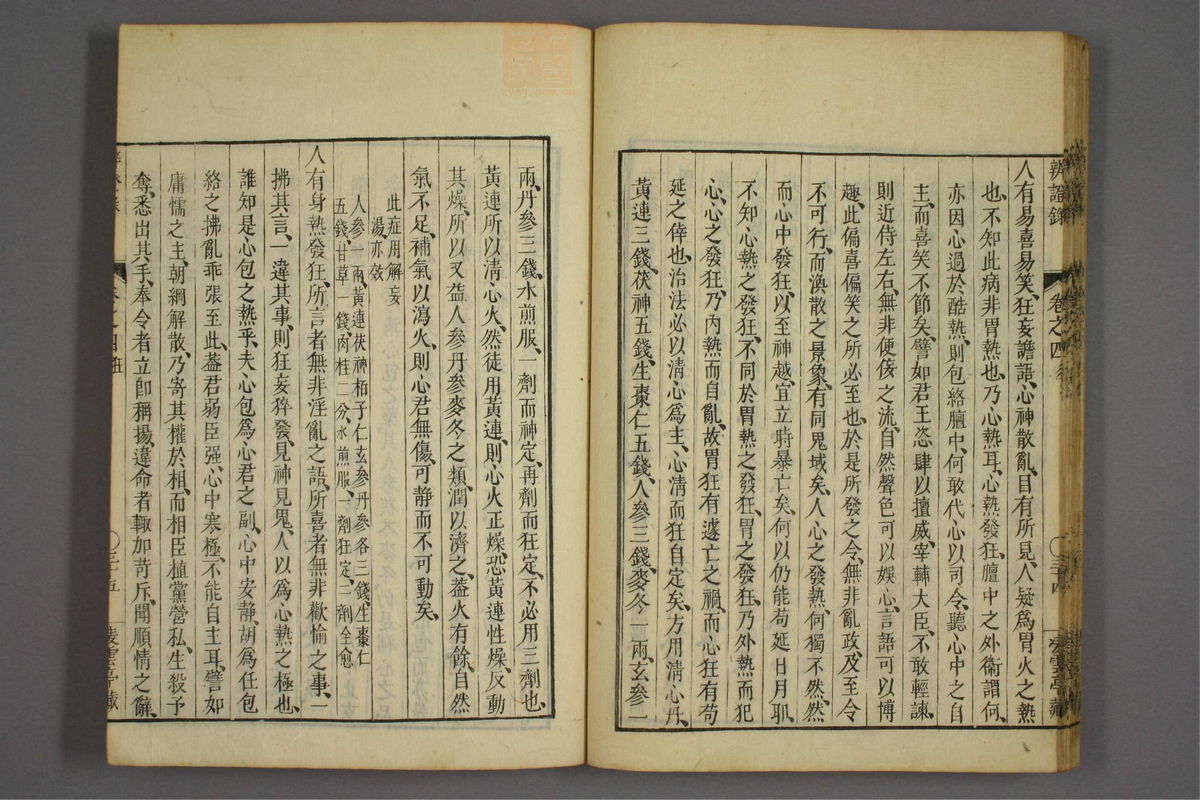 辨證錄 卷之四
人有易喜易笑、狂妄譫語、心神散亂、目有所見、人疑爲胃火之熱
也、不知此病非胃熱也、乃心熱耳、心熱發狂、膻中之外衞謂何、
亦因心過於酷熱、則包絡膻中、何敢代心以司令、聽心中之自
主、而喜笑不節矣、譬如君王恣肆以擅威、宰輔大臣、不敢輕諫、
則近侍左右、無非便佞之流、自然聲色可以娛心、言語可以博
趣、此偏喜偏笑之所必至也、於是所發之令、無非亂政、及至令
不可行、而渙散之景象、有同鬼域矣、人心之發熱、何獨不然、然
而心中發狂、以至神越、宜立時暴亡矣、何以仍能苟延日月耶、
不知心熱之發狂、不同於胃熱之發狂、胃之發狂、乃外熱而犯
心、心之發狂、乃內熱而自亂、故胃狂有遽亡之禍、而心狂有苟
延之倖也、治法必以淸心爲主、心淸而狂自定矣、方用淸心丹、
黃連三錢、茯神五錢、生棗仁五錢、人參三錢、麥冬一兩、玄參一
兩、丹參三錢、水煎服、一劑而神定、再劑而狂定、不必用三劑也、
黃連所以淸心火、然徒用黃連、則心火正燥、恐黃連性燥、反動
其燥、所以又益人參丹參麥冬之類、潤以濟之、蓋火有餘、自然
氣不足、補氣以瀉火、則心君無傷、可靜而不可動矣、
此症用解妄
湯亦效
人參一兩、黃連茯神柏子仁玄參丹參各三錢、生棗仁
五錢、甘草一錢、肉桂二分、水煎服、一劑狂定、二劑全愈
人有身熱發狂、所言者無非淫亂之語、所喜者無非歡愉之事、一
拂其言、一違其事、則狂妄猝發、見神見鬼、人以爲心熱之極也、
誰知是心包之熱乎、夫心包爲心君之副、心中安靜、胡爲任包
絡之拂亂乖張至此、蓋君弱臣强、心中寒極、不能自主耳、譬如
庸懦之主、朝綱解散、乃寄其權於相、而相臣植黨營私、生殺予
奪、悉出其手、奉令者立卽稱揚、違命者輙加苛斥、聞順情之辭、